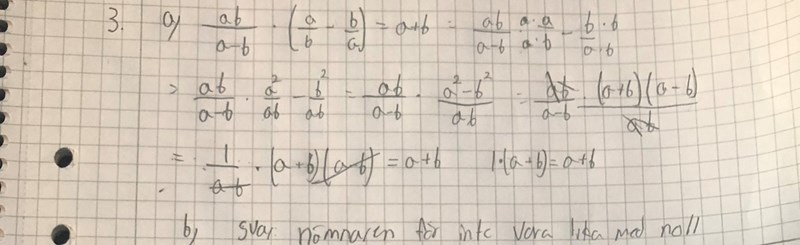 3. a) ab/(a-b) · (a/b - b/a) = a+b = ab/(a-b) · (a·a)/(a·b) - (b·b)/(a·b)
= ab/(a-b) · a²/ab - b²/ab = ab/(a-b) · (a²-b²)/ab = ab/(a-b) · (a+b)(a-b)/ab
= 1/(a-b) · (a+b)(a-b) = a+b 1·(a+b)=a+b
b) svar nämnaren får inte vara lika med noll